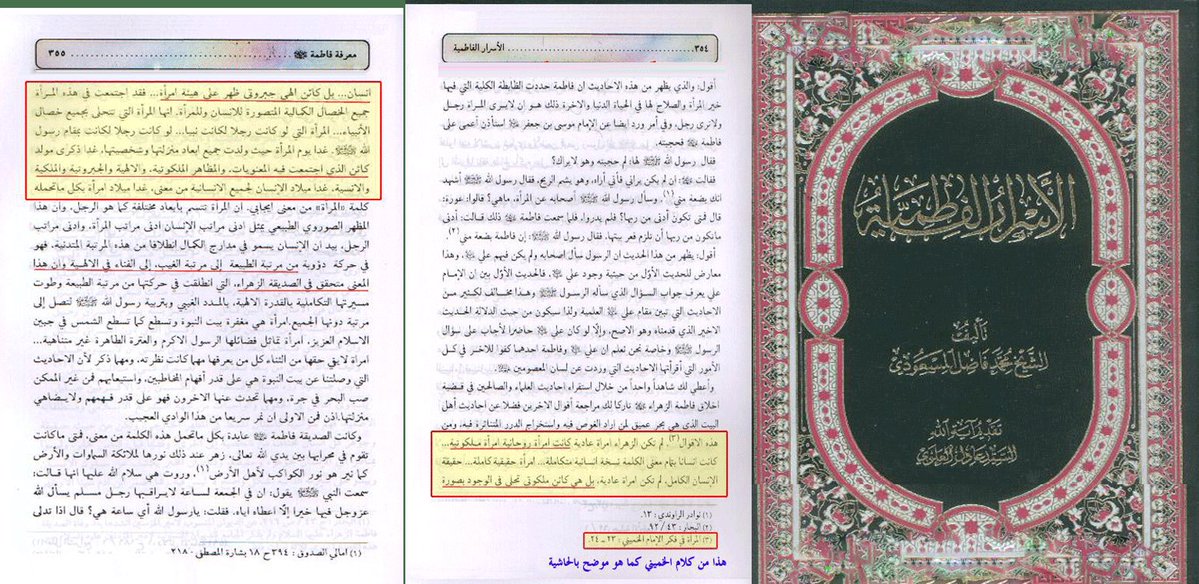 الأسرار الفاطمية
تأليف
الشيخ محمد فاضل المسعودي
تقديم آية الله
السيد عادل العلوي
٣٥٤ ........ الأسرار الفاطمية
أقول: والذي يظهر من هذه الاحاديث ان فاطمة حددت الضابطة الكلية التي فيها
خير المرأة والصلاح لها في الحياة الدنيا والاخرة ذلك هو ان لايرى المراة رجل
ولاترى رجل، وفي أمر ورد ايضا عن الإمام موسى بن جعفر ﷺ استأذن أعمى على
فاطمة ﷺ فحجبته.
فقال رسول الله ﷺ لها: لم حجبته وهو لايراك؟
فقالت ﷺ: ان لم يكن يراني فأني أراه، وهو يشم الريح، فقال رسول الله ﷺ أشهد
انك بضعة مني(١). وسأل رسول الله ﷺ أصحابه عن المرأة، ماهي؟ قالوا: عورة:
قال فمتى تكون أدنى من ربها؟ فلم يدروا، فلما سمعت فاطمة ﷺ ذلك قالت: أدنى
ماتكون من ربها أن تلزم قعر بيتها، فقال رسول الله ﷺ: إن فاطمة بضعة مني(٢).
أقول: يظهر من هذا الحديث ان الرسول سأل اصحابه ولم يكن فيهم علي ﷺ، وهذا
معارض للحديث الأول من حيثية وجود علي ﷺ، فالحديث الأول يبين إن الإمام
علي يعرف جواب السؤال الذي سأله الرسول ﷺ وهذا مخالف لكثير من
الاحاديث التي تبين مقام علي ﷺ العلمية ولذا سيكون من حيث الدلالة الحديث
الاخير الذي قدمناه وهو الاصح، وإلا لو كان علي ﷺ حاضرا لأجاب على سؤال
الرسول ﷺ وخاصة نحن تعلم ان علي ﷺ وفاطمة احدهما كفوا للاخر في كل
الأمور التي أقرأتها الاحاديث التي وردت عن لسان المعصومين ﷺ.
وأعطي لك شاهداً واحداً من خلال استقراء احاديث العلماء والصالحين في قضية
اخلاق فاطمة الزهراء ﷺ تاركا لك مراجعة أقوال الاخرين فضلا عن احاديث أهل
البيت الذي هي بحر عميق لمن اراد الغوص فيه واستخراج الدرر المتناثرة فيه، ومن
هذه الاقوال(٣) لم تكن الزهراء امرأة عادية كانت امرأة روحانية امرأة ملكوتية...
كانت انسانا بتمام معنى الكلمة نسخة انسانية متكاملة... امرأة حقيقية كاملة... حقيقة
الإنسان الكامل. لم تكن امرأة عادية، بل هي كائن ملكوتي تجلى في الوجود بصورة
(١) نوادر الراوندي: ١٣.
(٢) البحار: ٤٣ / ٩٢.
(٣) المرأة في فكر الإمام الخميني: ٢٣ ـ ٢٤.
هذا من كلام الخميني كما هو موضح بالحاشية
معرفة فاطمة ﷺ ........ ٣٥٥
انسان... بل كائن الهي جبروتي ظهر على هيئة امرأة... فقد اجتمعت في هذه المرأة
جميع الخصال الكمالية المتصورة للانسان وللمرأة. انها المرأة التي تتحلى بجميع خصال
الأنبياء... المرأة التي لو كانت رجلا لكانت نبيا... لو كانت رجلا لكانت بمقام رسول
الله ﷺ. غدا يوم المرأة حيث ولدت جميع ابعاد منزلتها وشخصيتها، غدا ذكرى مولد
كائن الذي اجتمعت فيه المعنويات، والمظاهر الملكوتية، والالهية والجبروتية والملكية
والانسية، غدا ميلاد الإنسان لجميع الانسانية من معنى، غدا ميلاد امرأة بكل ماتحمله
كلمة «المرأة» من معنى ايجابي. ان المرأة تتسم بأبعاد مختلفة كما هو الرجل، وان هذا
المظهر الصوروي الطبيعي يمثل ادنى مراتب الإنسان أدنى مراتب المرأة. وادنى مراتب
الرجل، بيد ان الإنسان يسمو في مدارج الكمال انطلاقا من هذه المرتبة المتدنية، فهو
في حركة دؤوبة من مرتبة الطبيعة إلى مرتبة الغيب، إلى الفناء في الالهية وان هذا
المعنى متحقق في الصديقة الزهراء، التي انطلقت في حركتها من مرتبة الطبيعة وطوت
مسيرتها التكاملية بالقدرة الالهية، بالمدد الغيبي وبتربية رسول الله ﷺ لتصل إلى
مرتبة دونها الجميع. امرأة هي مفخرة بيت النبوة وتسطع كما تسطع الشمس في جبين
الاسلام العزيز. امرأة تماثل فضائلها الرسول الاكرم والعترة الطاهرة غير متناهية...
امرأة لايفي حقها من الثناء كل من يعرفها مهما كانت نظرته، ومهما ذكر لأن الاحاديث
التي وصلتنا عن بيت النبوة هي على قدر أفهام المخاطبين، واستيعابهم فمن غير الممكن
صب البحر في جرة، ومهما تحدث عنها الاخرون فهو على قدر فهمهم ولايضاهي
منزلتها. اذن فمن الاولى ان نمر سريعا من هذا الوادي العجيب.
وكانت الصديقة فاطمة ﷺ عابدة بكل ماتحمل هذه الكلمة من معنى، فمتى ماكانت
تقوم في محرابها بين يدي الله تعالى، زهر عند ذلك نورها لملائكة السماوات والأرض
كما تزهر هو نور الكواكب لأهل الأرض(١). وروت هي سلام الله عليها انها قالت:
سمعت النبي ﷺ يقول: ان في الجمعة لساعة لايراقبها رجل مسلم يسأل الله
عزوجل فيها خيرا إلا اعطاه اياه، فقلت: يارسول الله أي ساعة هي؟ قال اذا تدلى
(١) امالي الصدوق: ٣٩٤ ح ١٨ بشارة المصطفى: ٢١٨.